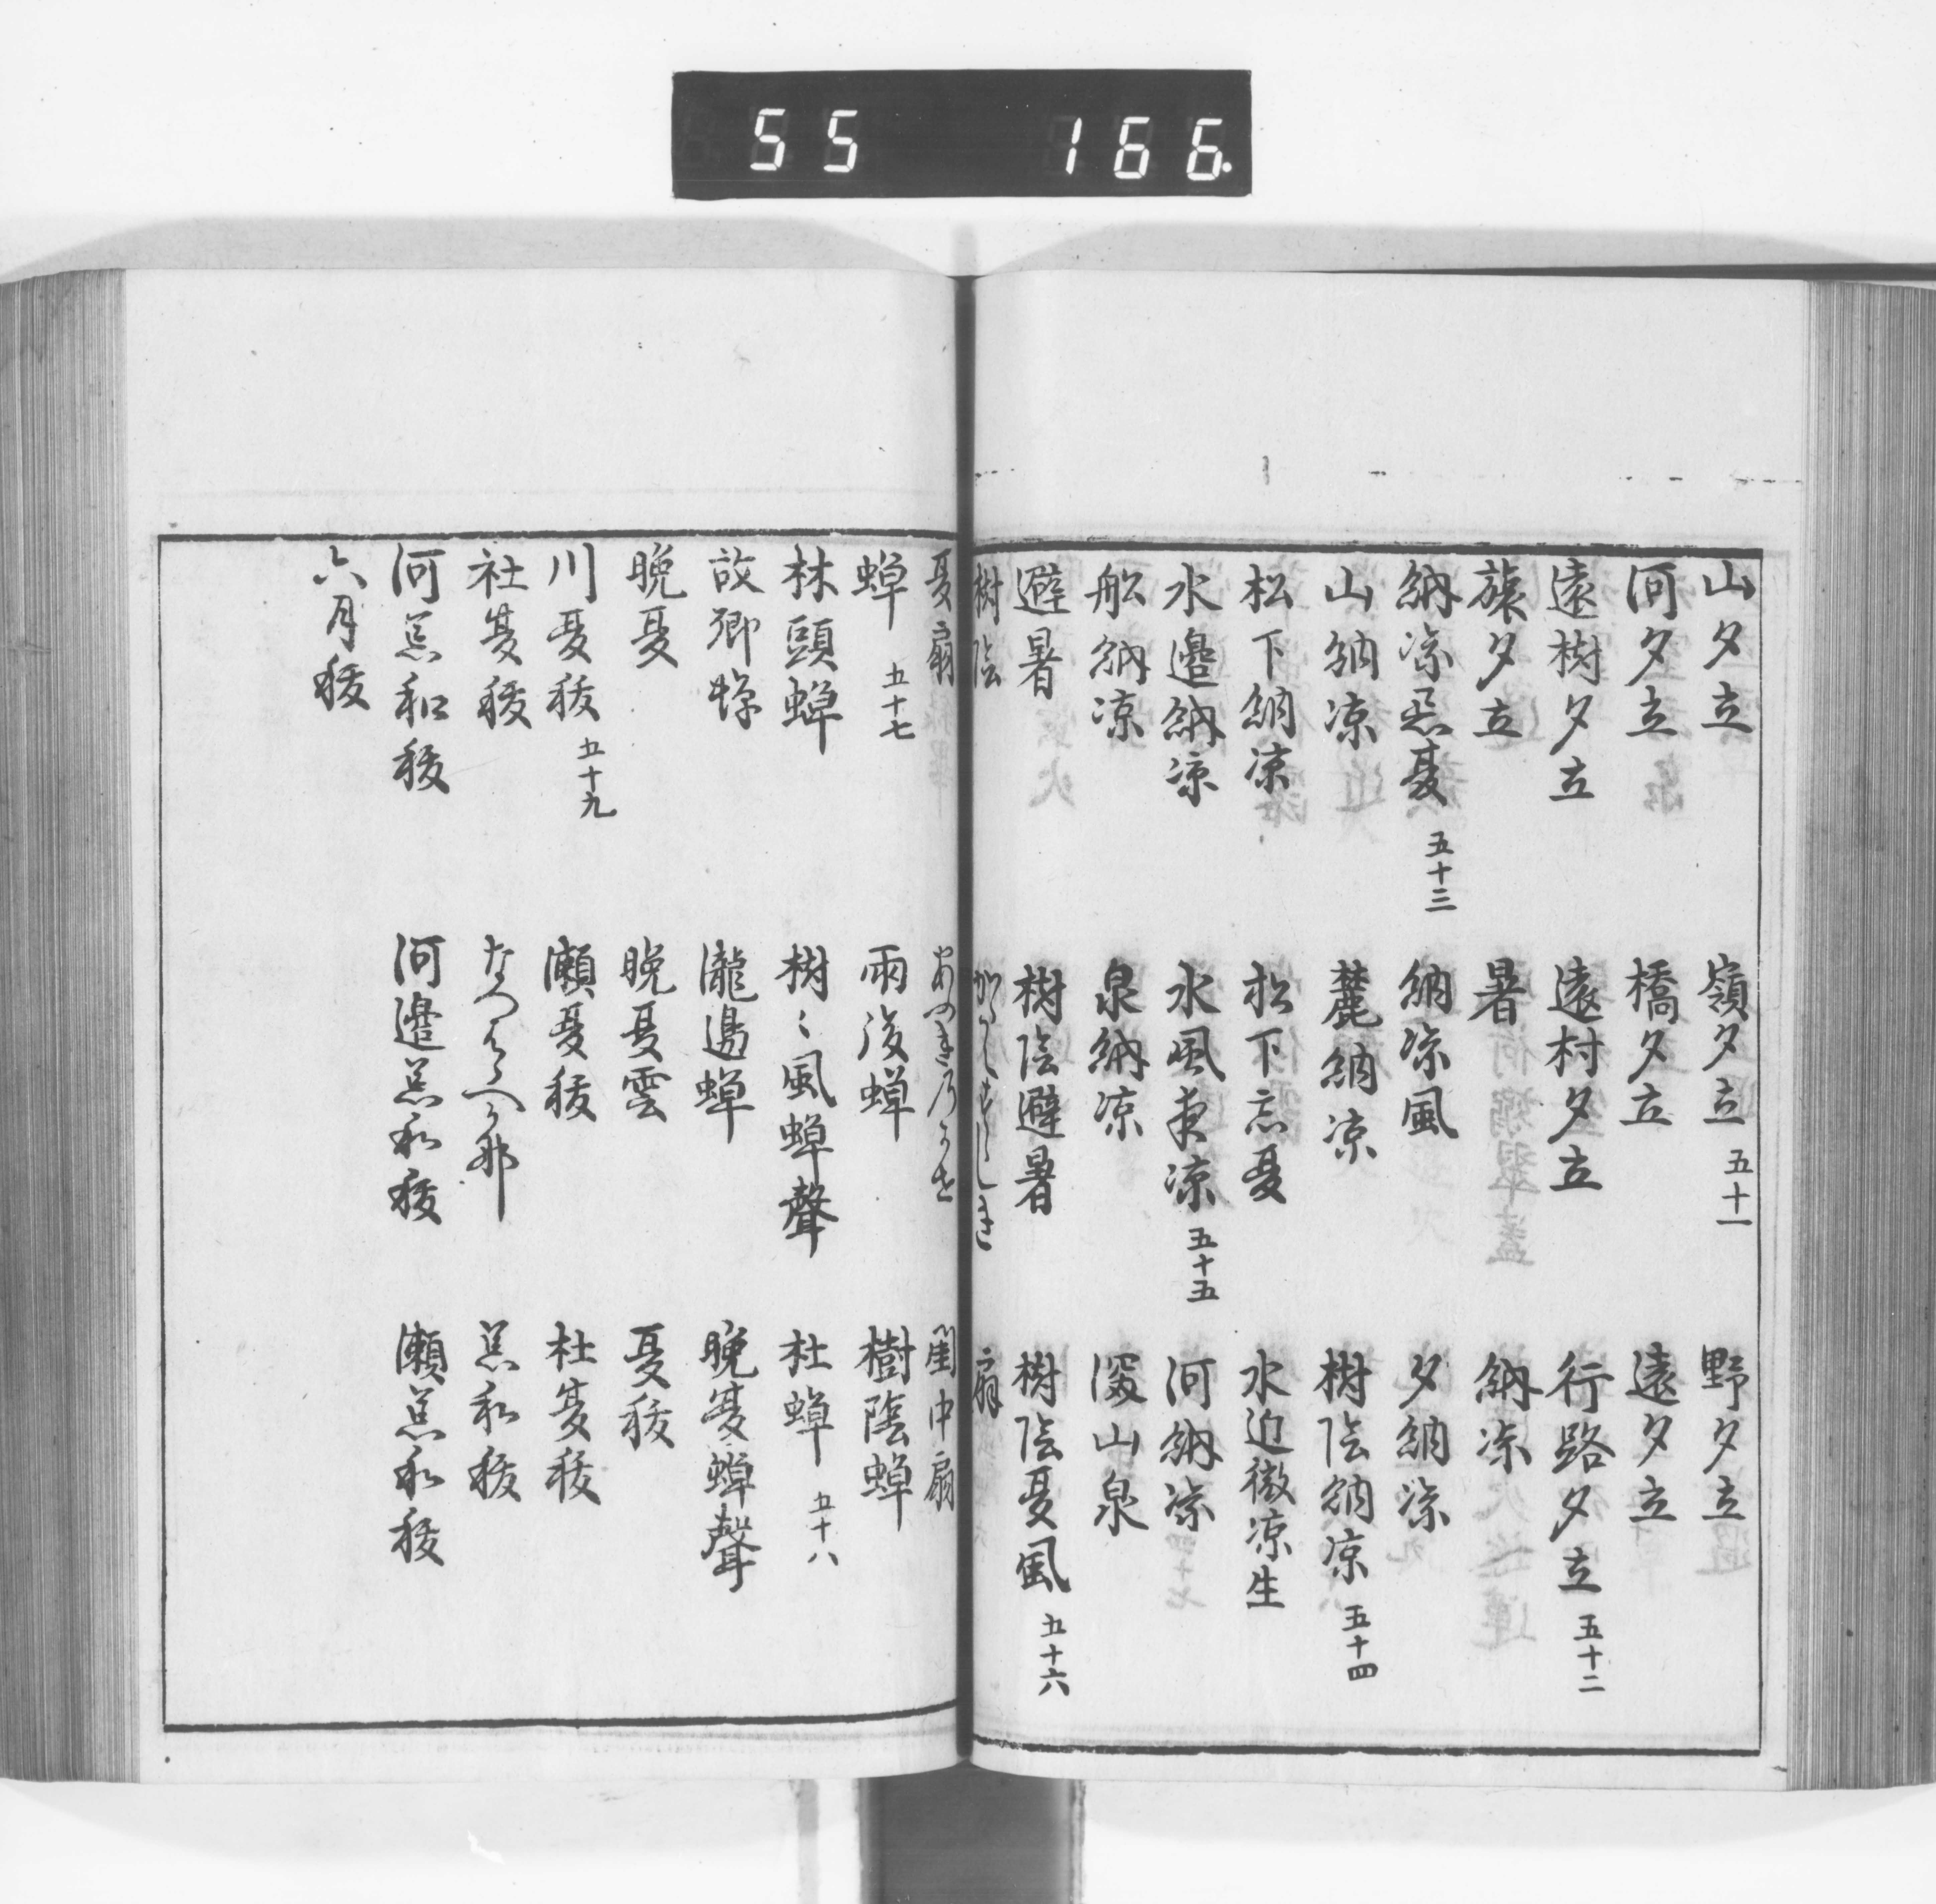 55 166
山夕立 嶺夕立 五十一 野夕立
河夕立 橋夕立 遠夕立
遠樹夕立 遠村夕立 行路夕立 五十二
旅夕立 暑 納凉
納凉忘夏 五十三 納凉風 夕納凉
山納凉 麓納凉 樹陰納凉 五十四
松下納凉 松下忘夏 水辺微凉生
水邊納凉 水風東凉 五十五 河納凉
船納凉 泉納凉 深山泉
避暑 樹陰避暑 樹陰夏風 五十六
樹陰 扇
夏扇 あふきのかせ 閨中扇
蝉 五十七 雨後蝉 樹陰蝉
林頭蝉 樹〻風蝉聲 杜蝉 五十八
故郷蝉 瀧邊蝉 晩夏蝉聲
晩夏 晩夏雲 夏秡
川夏秡 五十九 瀬夏秡 杜夏秡
社夏秡 なつはらへ 荒和秡
河荒和秡 河邊荒和秡 瀬荒和秡
六月秡